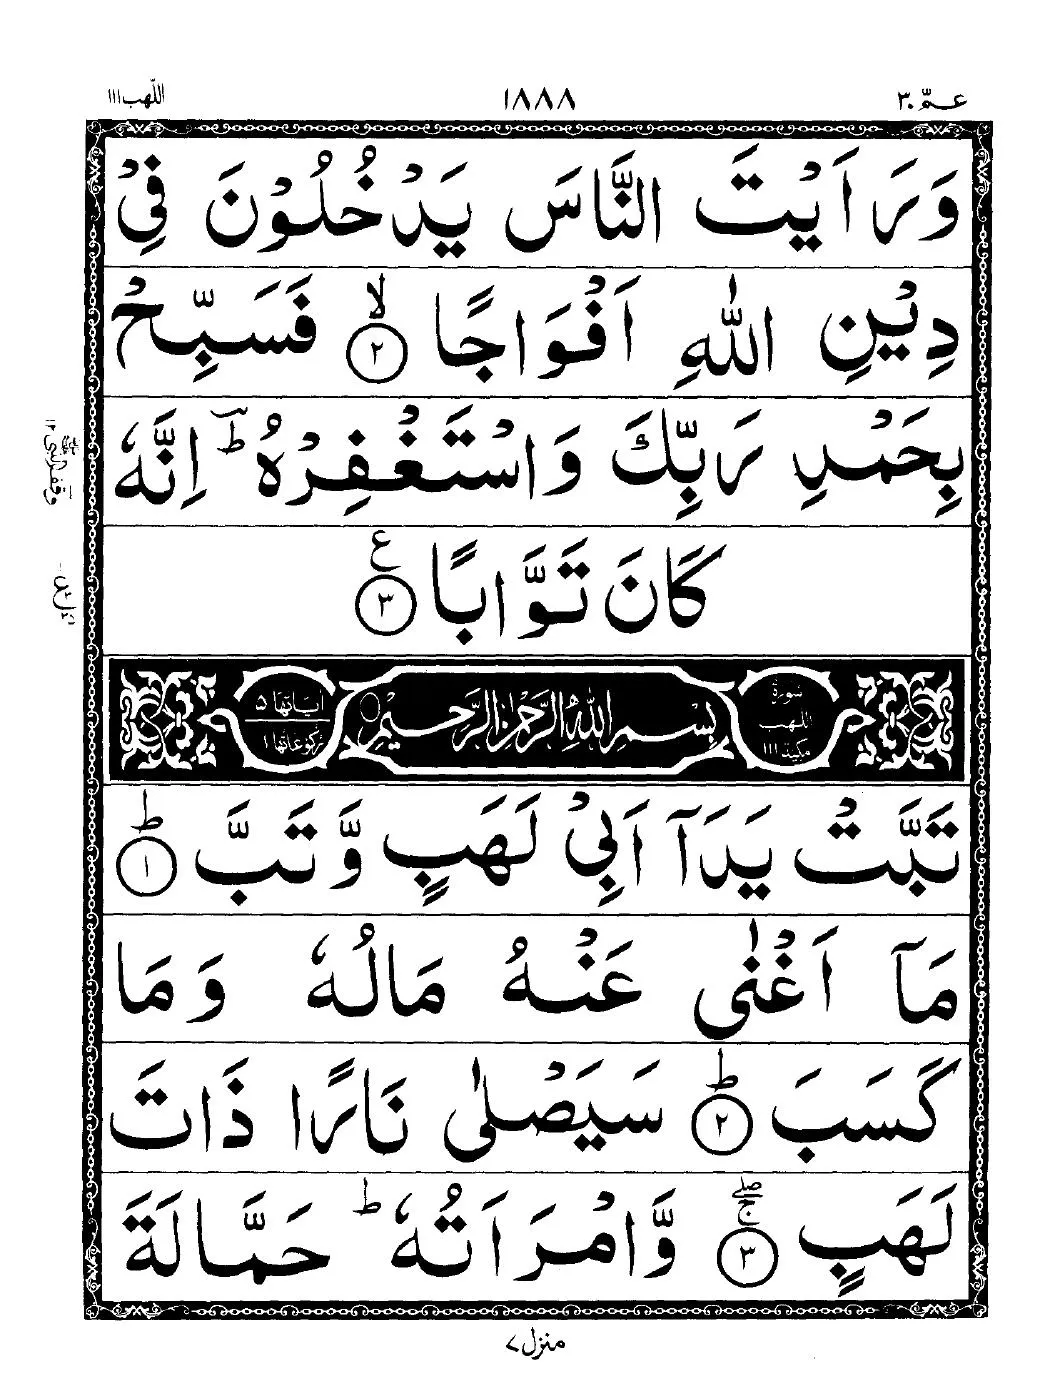 عـمّ ٣٠
١٨٨٨
اللّهب ١١١
وَرَاَيْتَ النَّاسَ يَدْخُلُوْنَ فِيْ
دِيْنِ اللّٰهِ اَفْوَاجًا ۙ۝٢ فَسَبِّحْ
بِحَمْدِ رَبِّكَ وَاسْتَغْفِرْهُ ؕ اِنَّهٗ
كَانَ تَوَّابًا ۝٣ ع
سُورَة اللهب مكية ١١١
بِسْمِ اللّٰهِ الرَّحْمٰنِ الرَّحِيْمِ
اٰياتها ٥
ركوعاتها ١
تَبَّتْ يَدَاۤ اَبِيْ لَهَبٍ وَّتَبَّ ؕ۝١
مَاۤ اَغْنٰى عَنْهُ مَالُهٗ وَمَا
كَسَبَ ؕ۝٢ سَيَصْلٰى نَارًا ذَاتَ
لَهَبٍ ۖۚ۝٣ وَّامْرَاَتُهٗ ؕ حَمَّالَةَ
منزل ٧